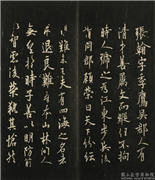 張翰字季鷹吳郡人有
清才善屬文而縱任不拘
時人號之為江東步兵後
謂同郡顧榮曰天下紛紜
禍難未已夫有四海之名者
求退良難吾本山林間人
無望於時子善以明防前
以智慮後榮執其愴然